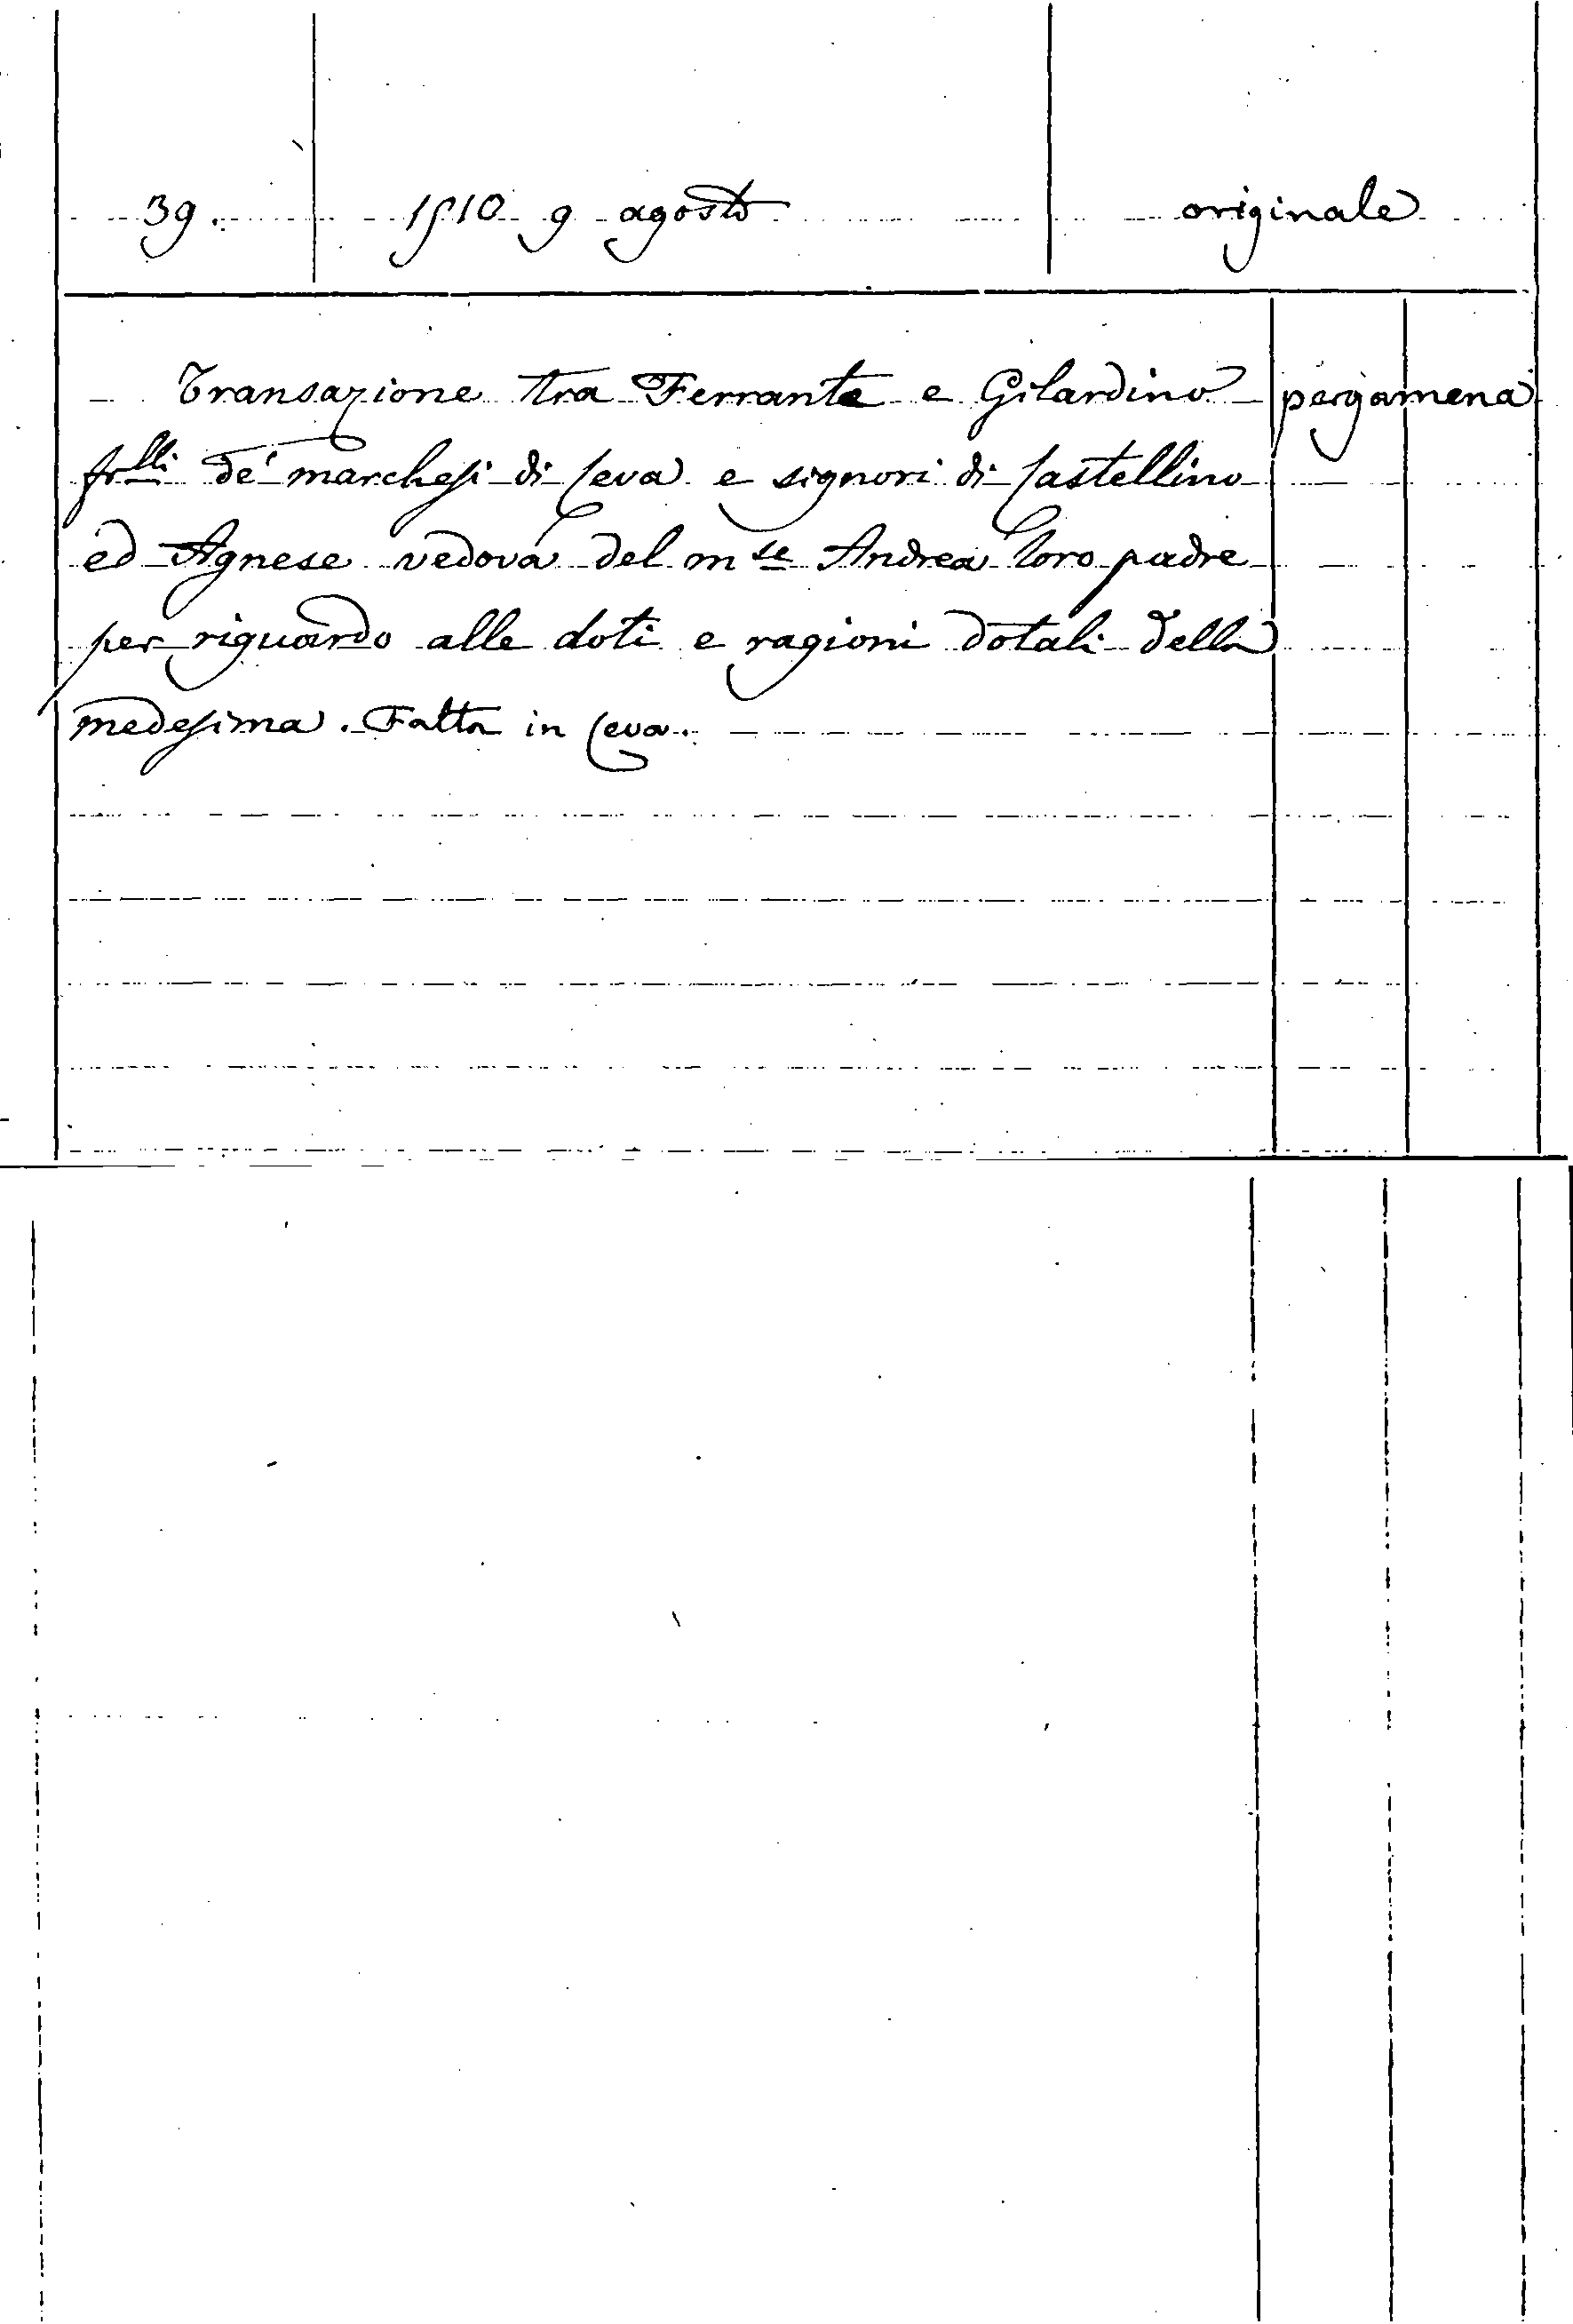 39. 1510 9 agosto originale
Transazione tra Ferrante e Gilardino pergamena
frlli de' marchesi di Ceva e signori di Castellino
ed Agnese vedova del mse Andrea loro padre
per riguardo alle doti e ragioni dotali della
medesima. Fatta in Ceva.